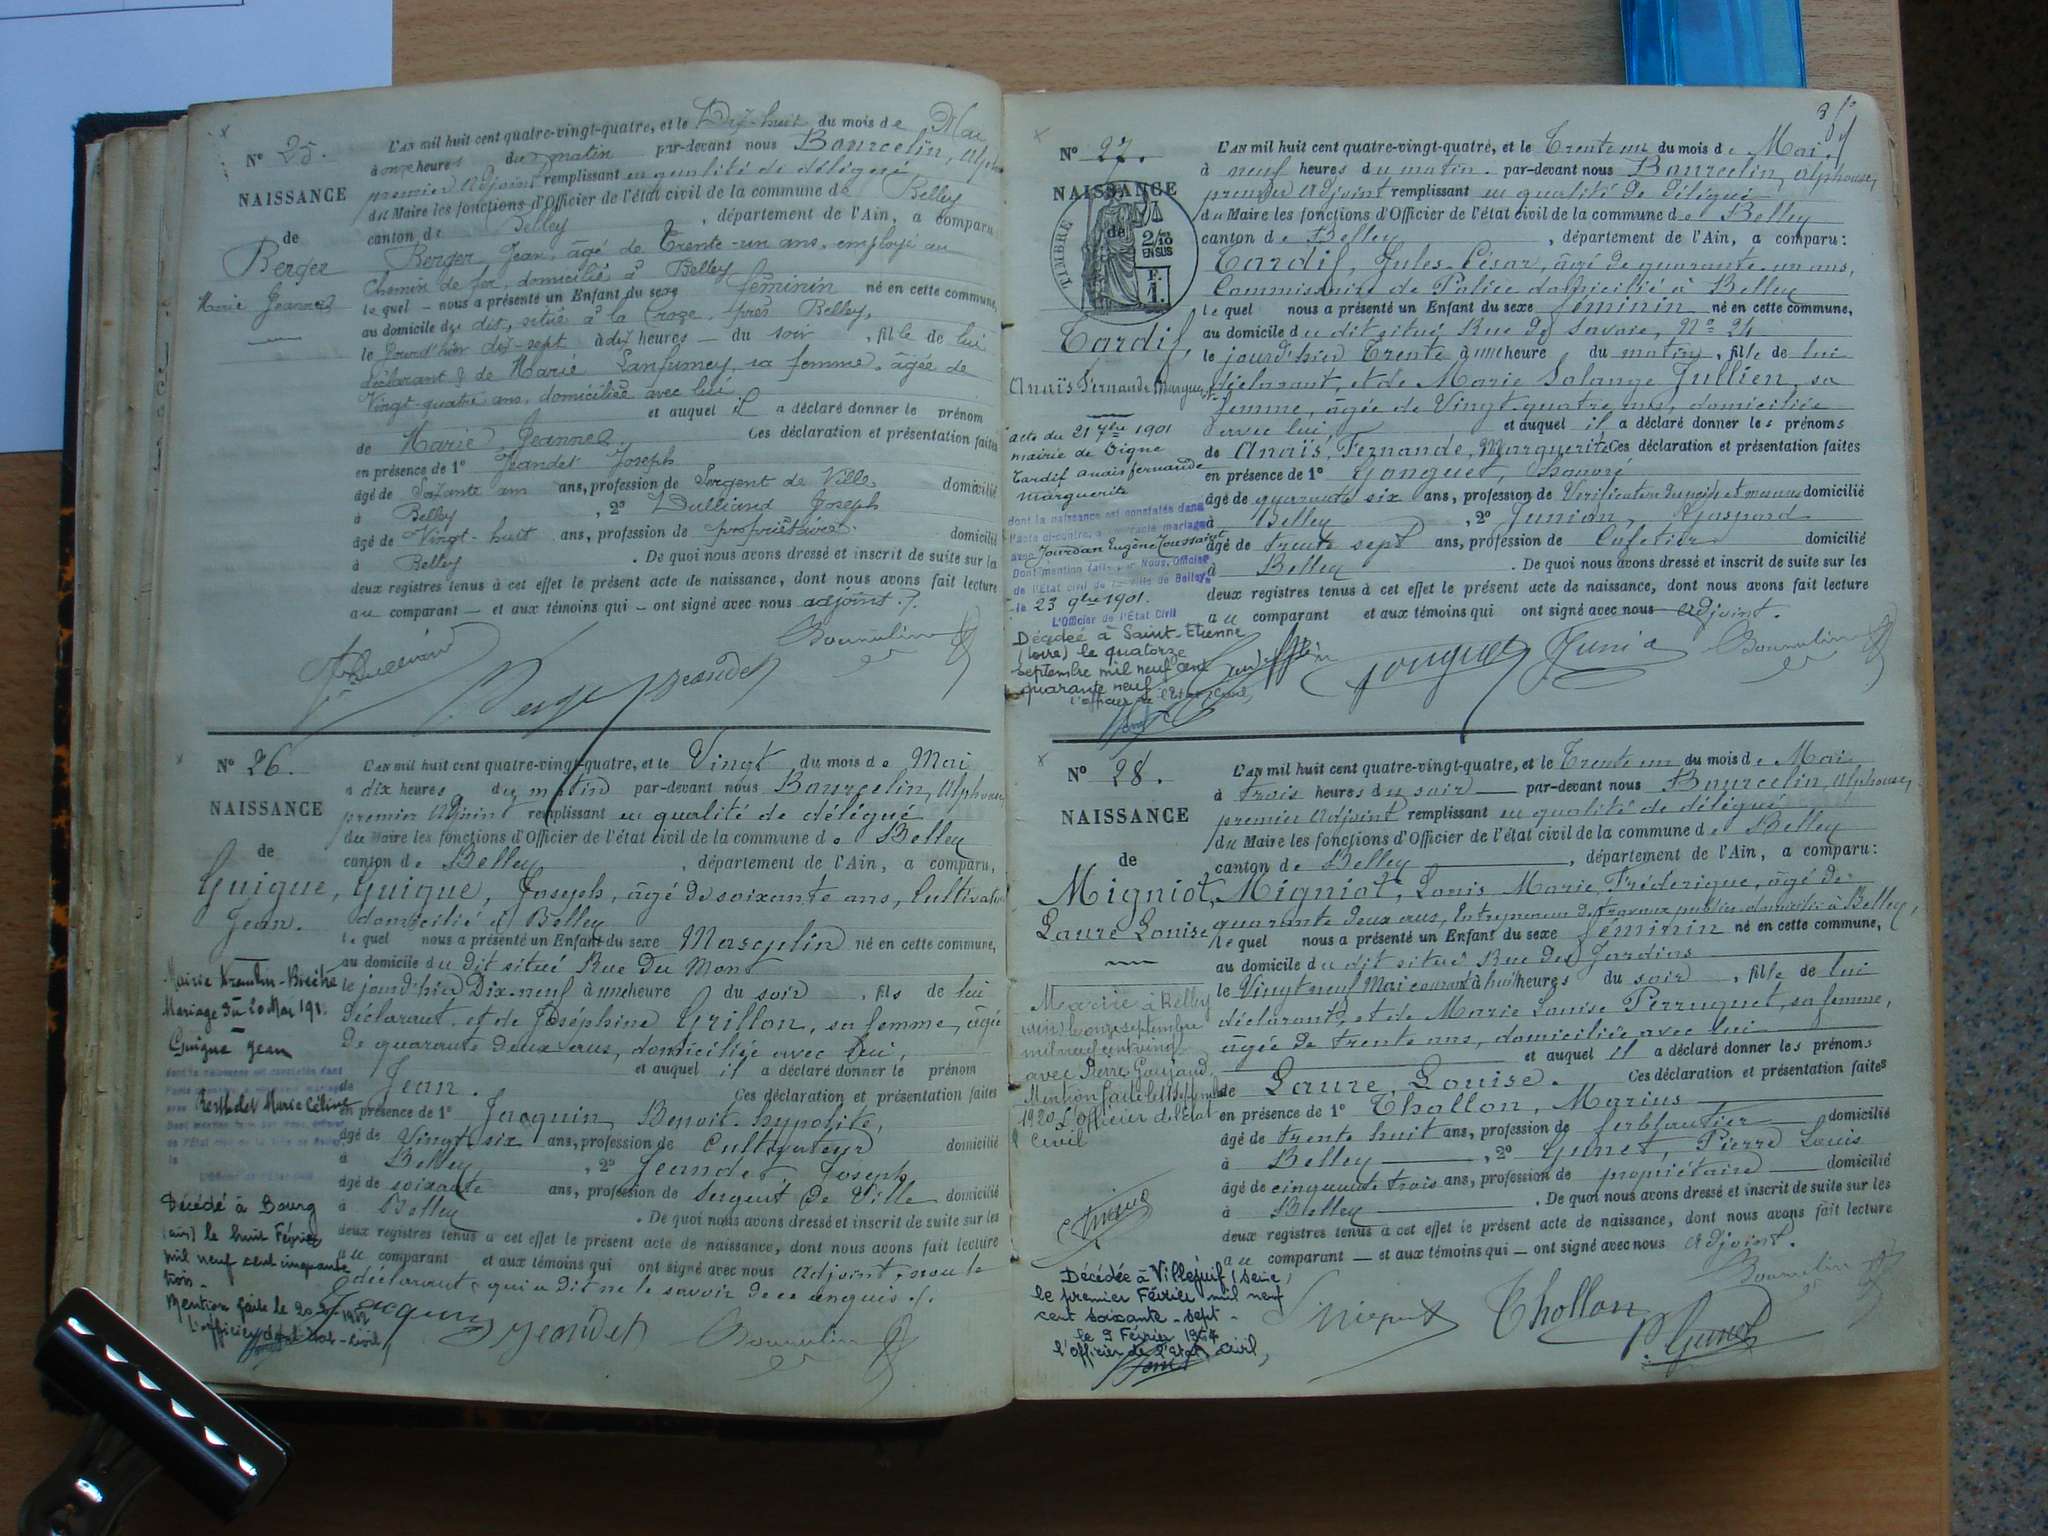 N° 25.
NAISSANCE
de
Berger
Marie Jeanne
L'AN mil huit cent quatre-vingt-quatre, et le Dix-huit du mois de Mai
à onze heures du matin par-devant nous Bourcelin, Alph
premier Adjoint remplissant en qualité de délégué
du Maire les fonctions d'Officier de l'état civil de la commune de Belley
canton de Belley, département de l'Ain, a comparu
Berger Jean, âgé de Trente-un ans, employé au
chemin de fer, domicilié à Belley
lequel nous a présenté un Enfant du sexe féminin né en cette commune,
au domicile du dit, situé à la Croze, près Belley,
le jourd'hier dix-sept à dix heures du soir, fille de lui
déclarant & de Marie Lanfumey, sa femme, âgée de
Vingt-quatre ans, domiciliée avec lui
et auquel il a déclaré donner le prénom
de Marie Jeanne. Ces déclaration et présentation faites
en présence de 1° Jeandet Joseph
âgé de Soixante ans ans, profession de Sergent de Ville domicilié
à Belley, 2° Dulliand Joseph
âgé de Vingt-huit ans, profession de propriétaire domicilié
à Belley. De quoi nous avons dressé et inscrit de suite sur la
deux registres tenus à cet effet le présent acte de naissance, dont nous avons fait lecture
au comparant et aux témoins qui ont signé avec nous adjoint.
Berger Jeandet Bourcelin
N° 26.
NAISSANCE
de
Guigue,
Jean.
Mairie Kremlin-Bicêtre
Mariage Du 20 Mai 191
Guigue Jean
Berthelet Marie Céline
Décédé à Bourg
(ain) le huit Février
mil neuf cent cinquante
trois.
Mention faite le 20
L'officier de l'état-civil,
L'AN mil huit cent quatre-vingt-quatre, et le Vingt du mois de Mai
à dix heures du matin par-devant nous Bourcelin, Alphonse
premier Adjoint remplissant en qualité de délégué
du Maire les fonctions d'Officier de l'état civil de la commune de Belley
canton de Belley, département de l'Ain, a comparu,
Guigue, Joseph, âgé de soixante ans, Cultivateur
domicilié à Belley
lequel nous a présenté un Enfant du sexe Masculin né en cette commune,
au domicile du dit situé Rue du Mont
le jourd'hier Dix-neuf à une heure du soir, fils de lui
déclarant et de Joséphine Grillon, sa femme, âgée
de quarante deux ans, domiciliée avec lui,
et auquel il a déclaré donner le prénom
de Jean. Ces déclaration et présentation faites
en présence de 1° Jacquin, Benoit-hypolite,
âgé de Vingt six ans, profession de Cultivateur domicilié
à Belley, 2° Jeandet, Joseph
âgé de soixante ans, profession de Sergent de Ville domicilié
à Belley. De quoi nous avons dressé et inscrit de suite sur les
deux registres tenus à cet effet le présent acte de naissance, dont nous avons fait lecture
au comparant et aux témoins qui ont signé avec nous Adjoint, non le
déclarant qui a dit ne le savoir de ce enquis
Jacquin Jeandet Bourcelin
N° 27.
NAISSANCE
de
TIMBRE
2/10
EN SUS
F.
1.
Tardif,
Anaïs Fernande Marguerite
acte du 21 7bre 1901
mairie de Digne
Tardif Anaïs fernande
Marguerite
dont la naissance est constatée dans
l'acte ci-contre, a contracté mariage
avec Jourdan Eugène Toussaint
Dont mention faite par Nous, Officier
de l'Etat civil de la ville de Belley,
le 23 9bre 1901.
L'Officier de l'Etat Civil
Décédée à Saint-Etienne
(Loire) le quatorze
septembre mil neuf cent
quarante neuf
l'officier de l'Etat-Civil,
L'AN mil huit cent quatre-vingt-quatre, et le Trente un du mois de Mai
à neuf heures du matin par-devant nous Bourcelin, Alphonse,
premier Adjoint remplissant en qualité de délégué
du Maire les fonctions d'Officier de l'état civil de la commune de Belley
canton de Belley, département de l'Ain, a comparu:
Tardif, Jules-César, âgé de quarante-un ans,
Commissaire de Police domicilié à Belley
lequel nous a présenté un Enfant du sexe féminin né en cette commune,
au domicile du dit situé Rue de Savoie, N° 24
le jourd'hier Trente à une heure du matin, fille de lui
déclarant, et de Marie Solange Jullien, sa
femme, âgée de Vingt-quatre ans, domiciliée
avec lui et auquel il a déclaré donner les prénoms
de Anaïs, Fernande, Marguerite Ces déclaration et présentation faites
en présence de 1° Gonguet, honoré
âgé de quarante six ans, profession de Vérificateur des poids et mesures domicilié
à Belley, 2° Junian, Gaspard
âgé de trente sept ans, profession de Cafetier domicilié
à Belley. De quoi nous avons dressé et inscrit de suite sur les
deux registres tenus à cet effet le présent acte de naissance, dont nous avons fait lecture
au comparant et aux témoins qui ont signé avec nous Adjoint.
Gonguet Junia Bourcelin
N° 28.
NAISSANCE
de
Migniot,
Laure Louise
Mariée à Belley
(ain) le onze septembre
mil neuf cent vingt
avec Pierre Goujaud
Mention faite le 11 septembre
1920 L'Officier de l'Etat
Civil
Décédée à Villejuif (Seine)
le premier Février mil neuf
cent soixante-sept
le 9 Février
l'Officier de l'Etat Civil,
L'AN mil huit cent quatre-vingt-quatre, et le Trente un du mois de Mai
à trois heures du soir par-devant nous Bourcelin, Alphonse,
premier Adjoint remplissant en qualité de délégué
du Maire les fonctions d'Officier de l'état civil de la commune de Belley
canton de Belley, département de l'Ain, a comparu:
Migniot, Louis Marie Fréderique, âgé de
quarante deux ans, Entrepreneur de travaux publics domicilié à Belley,
lequel nous a présenté un Enfant du sexe féminin né en cette commune,
au domicile du dit situé Rue des Jardins
le Vingt neuf Mai courant à huit heures du soir, fille de lui
déclarant, et de Marie Louise Perruquet, sa femme,
âgée de trente ans, domiciliée avec lui
et auquel il a déclaré donner les prénoms
de Laure, Louise. Ces déclaration et présentation faites
en présence de 1° Thollon, Marius
âgé de trente huit ans, profession de ferblantier domicilié
à Belley, 2° Gunet, Pierre Louis
âgé de cinquante trois ans, profession de propriétaire domicilié
à Belley. De quoi nous avons dressé et inscrit de suite sur les
deux registres tenus à cet effet le présent acte de naissance, dont nous avons fait lecture
au comparant et aux témoins qui ont signé avec nous Adjoint.
Thollon Bourcelin
P. Gunet